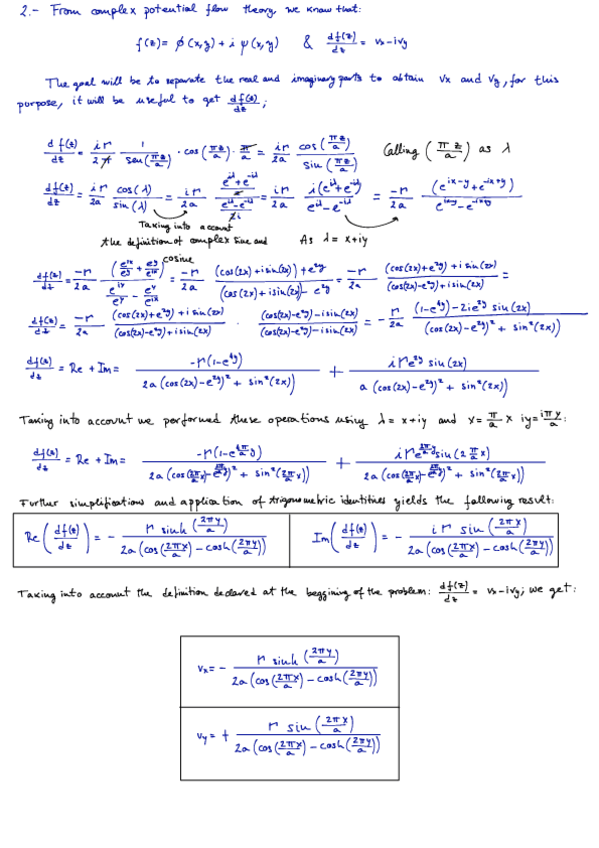 2.- From complex potential flow theory we know that:
f(z) = ϕ(x,y) + i ψ(x,y) & df(z)/dz = vx - ivy
The goal will be to separate the real and imaginary parts to obtain vx and vy, for this
purpose, it will be useful to get df(z)/dz;
df(z)/dz = iΓ/2π · 1/sen(πz/a) · cos(πz/a) · π/a = iΓ/2a · cos(πz/a)/sin(πz/a) Calling (πz/a) as λ
df(z)/dz = iΓ/2a · cos(λ)/sin(λ) = iΓ/2a · ((e^iλ + e^-iλ)/2)/((e^iλ - e^-iλ)/2i) = iΓ/2a · i(e^iλ + e^-iλ)/(e^iλ - e^-iλ) = -Γ/2a · (e^ix-y + e^-ix+y)/(e^ix-y - e^-ix+y)
Taking into account
the definition of complex sine and
cosine
As λ = x+iy
df(z)/dz = -Γ/2a · (e^ix/e^y + e^y/e^ix)/(e^ix/e^y - e^y/e^ix) = -Γ/2a · (cos(2x) + i sin(2x)) + e^2y/(cos(2x) + i sin(2x)) - e^2y = -Γ/2a · (cos(2x) + e^2y) + i sin(2x)/(cos(2x) - e^2y) + i sin(2x) =
df(z)/dz = -Γ/2a · (cos(2x) + e^2y) + i sin(2x)/(cos(2x) - e^2y) + i sin(2x) · (cos(2x) - e^2y) - i sin(2x)/(cos(2x) - e^2y) - i sin(2x) = -Γ/2a · (1 - e^4y) - 2ie^2y sin(2x)/(cos(2x) - e^2y)² + sin²(2x))
df(z)/dz = Re + Im = -Γ(1 - e^4y)/2a (cos(2x) - e^2y)² + sin²(2x)) + iΓe^2y sin(2x)/a (cos(2x) - e^2y)² + sin²(2x))
Taking into account we performed these operations using λ = x+iy and x = π/a x iy = iπy/a:
df(z)/dz = Re + Im = -Γ(1 - e^4π/a y)/2a (cos(2π/a x) - e^2π/a y)² + sin²(2π/a x)) + iΓe^2π/a y sin(2π/a x)/2a (cos(2π/a x) - e^2π/a y)² + sin²(2π/a x))
Further simplifications and application of trigonometric identities yields the following result:
Re(df(z)/dz) = - Γ sinh(2πy/a)/2a(cos(2πx/a) - cosh(2πy/a)) Im(df(z)/dz) = - iΓ sin(2πx/a)/2a(cos(2πx/a) - cosh(2πy/a))
Taking into account the definition declared at the beggining of the problem: df(z)/dz = vx - ivy; we get:
vx = - Γ sinh(2πy/a)/2a(cos(2πx/a) - cosh(2πy/a))
vy = + Γ sin(2πx/a)/2a(cos(2πx/a) - cosh(2πy/a))